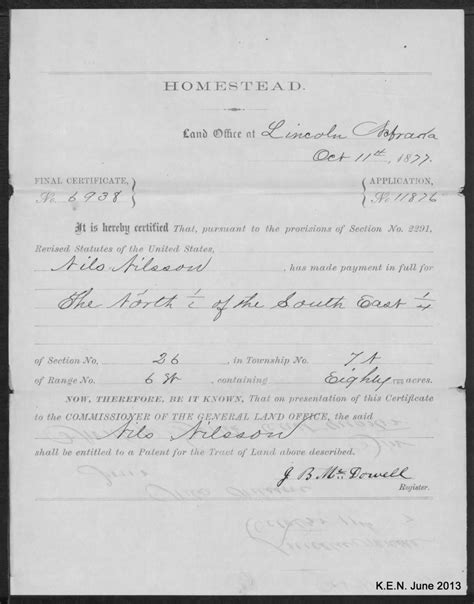 HOMESTEAD.
Land Office at Lincoln Nebraska
Oct 11th, 1877.
FINAL CERTIFICATE, APPLICATION,
No. 6938 No 11876
It is hereby certified That, pursuant to the provisions of Section No. 2291,
Revised Statutes of the United States,
Nils Nilsson, has made payment in full for
The North ½ of the South East ¼
of Section No. 26, in Township No. 7 N
of Range No. 6 W, containing Eighty acres.
NOW, THEREFORE, BE IT KNOWN, That on presentation of this Certificate
to the COMMISSIONER OF THE GENERAL LAND OFFICE, the said
Nils Nilsson
shall be entitled to a Patent for the Tract of Land above described.
J B McDowell
Register.
K.E.N. June 2013